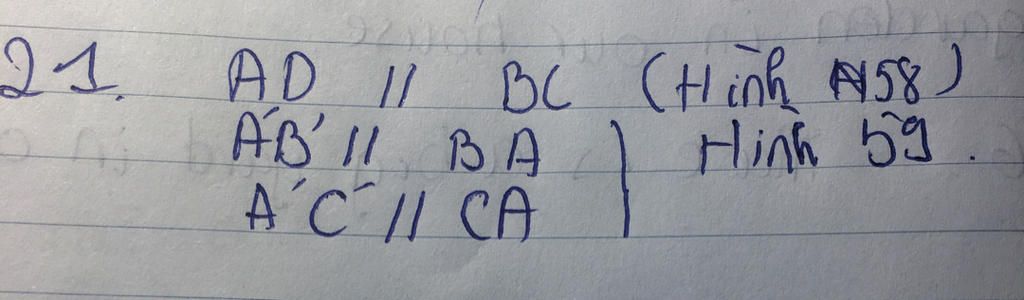 21. AD // BC (Hình 158)
A'B' // BA
A'C' // CA
Hình 59.